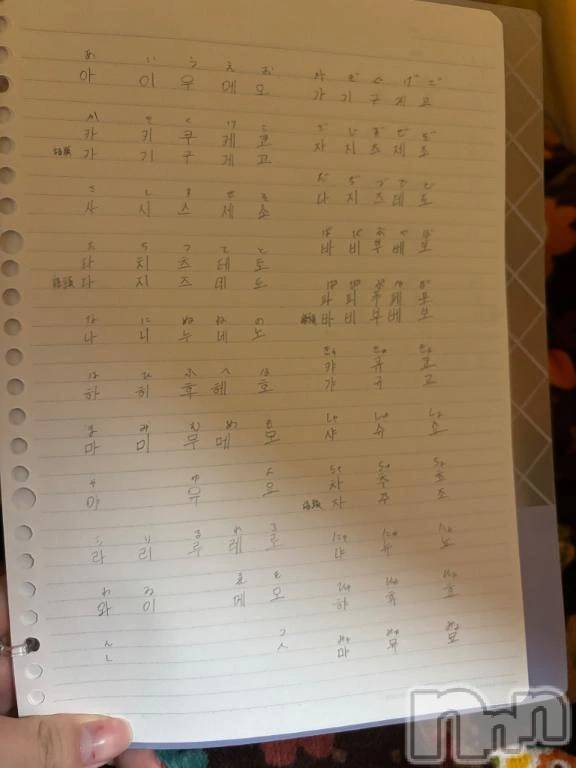 あ い う え お が ぎ ぐ げ ご
아 이 우 에 오 가 기 구 게 고
か き く け こ
카 키 쿠 케 코
語頭 가 기 구 게 고
ざ じ ず ぜ ぞ
자 지 즈 제 조
さ し す せ そ
사 시 스 세 소
だ ぢ づ で ど
다 지 즈 데 도
た ち つ て と
타 치 츠 테 토
語頭 다 지 즈 데 도
ば び ぶ べ ぼ
바 비 부 베 보
な に ぬ ね の
나 니 누 네 노
ぱ ぴ ぷ ぺ ぽ
파 피 푸 페 포
語頭 바 비 부 베 보
は ひ ふ へ ほ
하 히 후 헤 호
きゃ きゅ きょ
캬 큐 쿄
갸 규 교
ま み む め も
마 미 무 메 모
しゃ しゅ しょ
샤 슈 쇼
や ゆ よ
야 유 요
ちゃ ちゅ ちょ
차 추 초
語頭 자 주 조
ら り る れ ろ
라 리 루 레 로
にゃ にゅ にょ
냐 뉴 뇨
わ ゑ を
와 이 에 오
ひゃ ひゅ ひょ
햐 휴 효
ん っ
ㄴ ㅅ
みゃ みゅ みょ
먀 뮤 묘
nnn